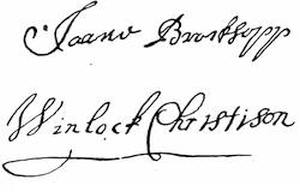 Joane Brocksopp
Winlock Christison